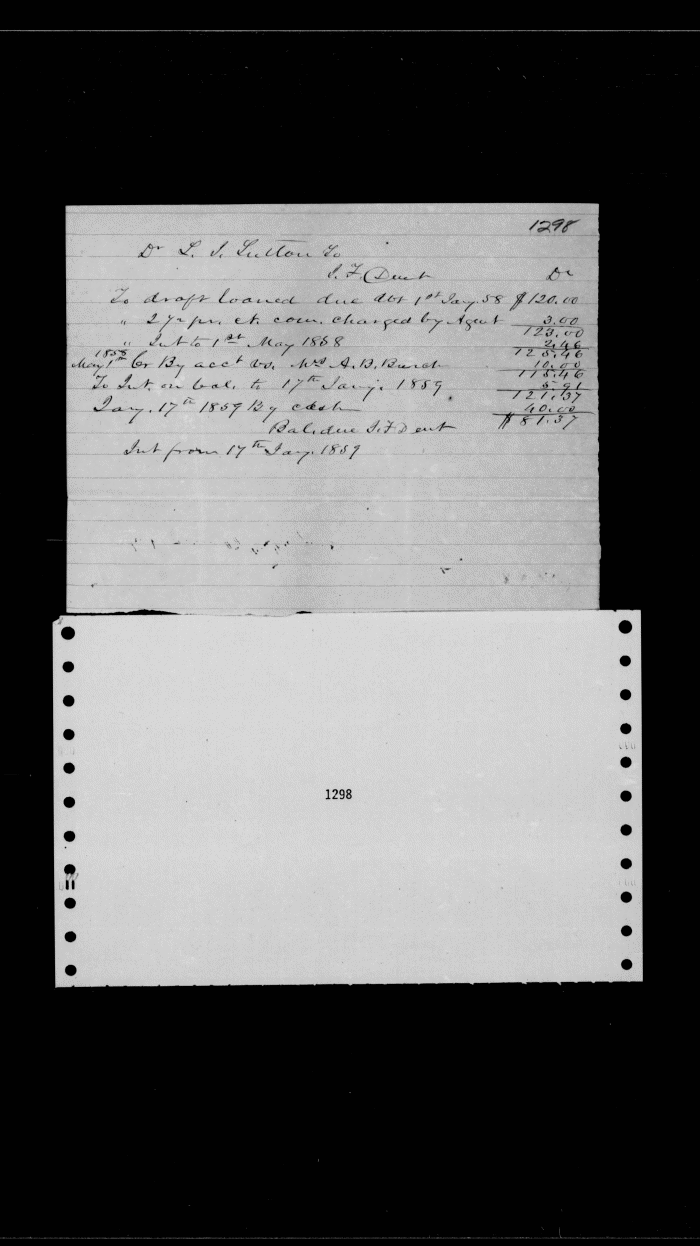 1298
Dr L. J. Sutton To
J. F. Dent Dr
To draft loaned due dbt 1st Jany. 58 $120.00
" 2 1/2 pr. ct. com. charged by Agent 3.00
123.00
" Int to 1st May 1858 2.46
125.46
1858
May 1st Cr By acct vs. Mrs A. B. Burch 10.00
115.46
To Int. on bal. to 17th Jany. 1859 5.91
121.37
Jany. 17th 1859 By cash 40.00
Bal. due J. F Dent $81.37
Int from 17th Jany. 1859
1298